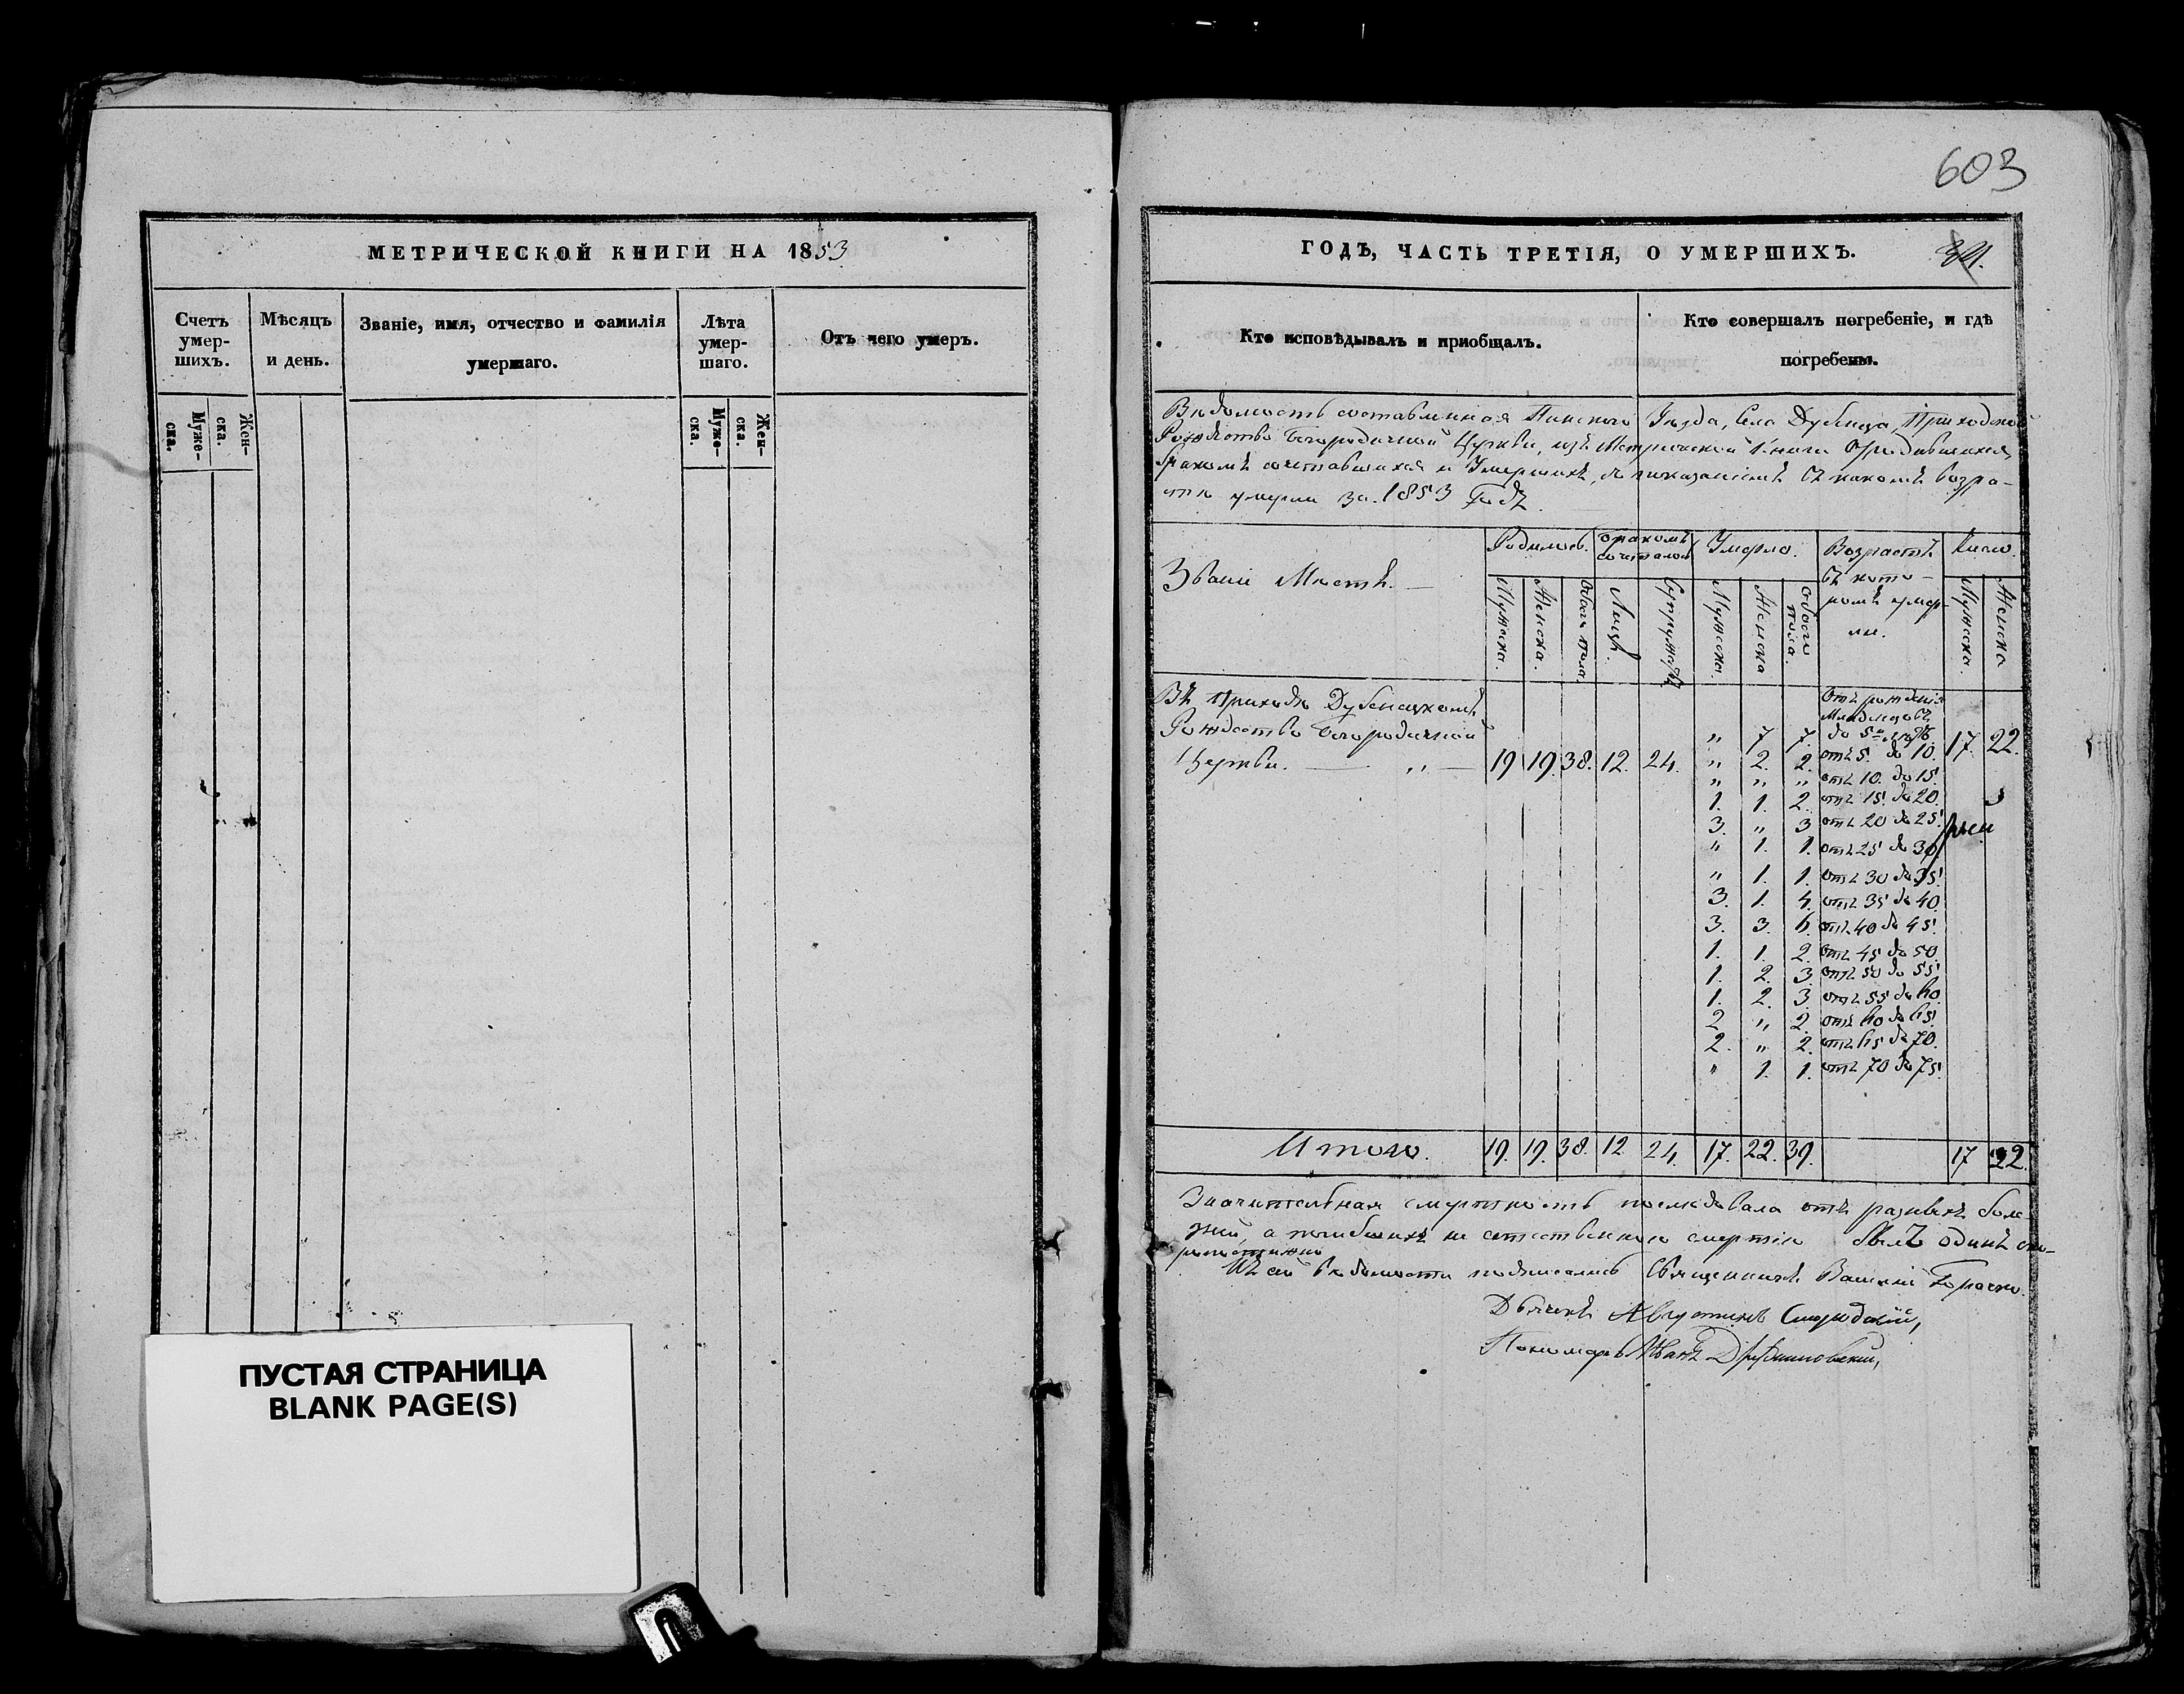 МЕТРИЧЕСКОЙ КНИГИ НА 1853
Счетъ умер-шихъ.
Мѣсяцъ и день.
Званіе, имя, отчество и фамилія умершаго.
Лѣта умер-шаго.
Отъ чего умеръ.
Муже-ска.
Жен-ска.
Муже-ска.
Жен-ска.
ПУСТАЯ СТРАНИЦА
BLANK PAGE(S)
603
ГОДЪ, ЧАСТЬ ТРЕТІЯ, О УМЕРШИХЪ.
Кто исповѣдывалъ и пріобщалъ.
Кто совершалъ погребеніе, и гдѣ погребены.
Вѣдомость составленная Пинского Уѣзда, Села Дубенца, Приходской
Рождество Богородичной Церкви, изъ Метрической Книги О родившихся,
бракомъ сочетавшихся и Умершихъ, съ показаніемъ въ какомъ возра-
стѣ умерли за 1853 Годъ.
Званіе Мѣстъ.
Родилось.
Бракомъ сочеталось
Умерло.
Возрастъ въ кото-ромъ умер-ли.
Число.
Мужеска.
Женска.
Обоего пола.
Лицъ.
Супружествъ
Мужеска.
Женска
Обоего пола.
Мужеска.
Женска
Въ Приходѣ Дубенецкомъ
Рождество Богородичной
Церкви. — „ — 19 19. 38. 12. 24.
Отъ рожденія Младенцовъ
„ 7 7. до 5 17. 22.
„ 2. 2. отъ 5. до 10.
„ „ „ отъ 10. до 15.
1. 1. 2. отъ 15. до 20.
3. „ 3 отъ 20 до 25.
„ 1. 1. отъ 25 до 30.
„ 1. 1. отъ 30 до 35.
3. 1. 4. отъ 35 до 40.
3. 3. 6. отъ 40 до 45.
1. 1. 2. отъ 45 до 50.
1. 2. 3. отъ 50 до 55.
1. 2. 3 отъ 55 до 60.
2 „ 2. отъ 60 до 65.
2. „ 2. отъ 65 до 70.
„ 1. 1. отъ 70 до 75.
Итого. 19. 19. 38. 12 24. 17. 22. 39. 17 22.
Значительная смертность послѣдовала отъ разныхъ болѣ-
зней, а погибшихъ не естественною смертію былъ одинъ ско-
ропостижно
Къ сей вѣдомости подписались Священникъ
Дьячекъ Августинъ
Пономарь Иванъ